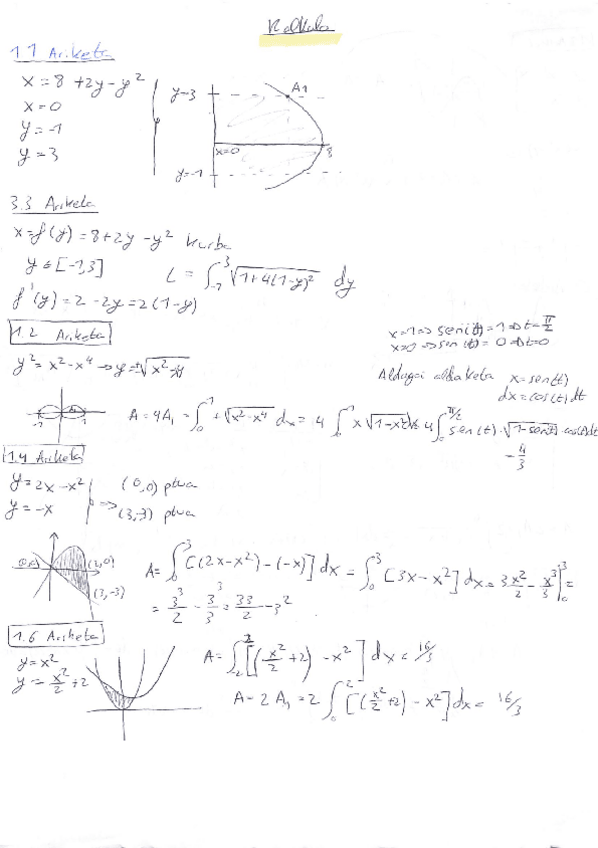 Kalkulu
1.1 Ariketa
x = 8 + 2y - y²
x = 0
y = -1
y = 3
y=3
A1
x=0
y=-1
3.3 Ariketa
x = f(y) = 8 + 2y - y² kurba
y ∈ [-1,3]
L = ∫₋₁³ √(1+4(1-y)²) dy
f'(y) = 2 - 2y = 2(1-y)
1.2 Ariketa
x=1 => sen(t)=1 => t=π/2
x=0 => sin(t) = 0 => t=0
y² = x² - x⁴ → y = ±√(x² - x⁴)
Aldagai aldaketa x = sen(t)
dx = cos(t) dt
-1 1
A = 4A₁ = ∫₀¹ +√(x²-x⁴) dx = 4 ∫₀¹ x√(1-x²) dx = 4 ∫₀^(π/2) sen(t) · √(1-sen²t) · cos(t) dt
4/3
1.4 Ariketa
y = 2x - x²
(0,0) ptua
y = -x
=> (3,-3) ptua
(0,0)
(2,0)
(3,-3)
A = ∫₀³ [(2x-x²) - (-x)] dx = ∫₀³ [3x - x²] dx = 3x²/2 - x³/3 |₀³ =
= 3³/2 - 3³/3 = 33/2 - 3²
1.6 Ariketa
y = x²
y = x²/2 + 2
A = ∫₋₂² [(x²/2 + 2) - x²] dx = 16/3
A = 2 A₁ = 2 ∫₀² [(x²/2 + 2) - x²] dx = 16/3